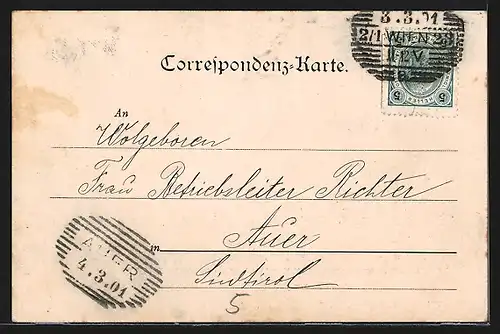 3.3.01
2/1 WIEN 2
11-12.V.
5 HELLER 5
Correspondenz-Karte.
An
Wolgeboren
Frau Betriebsleiter Richter
in Auer
Südtirol
AUER
4.3.01
5